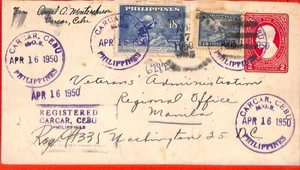 From
Carcar, Cebu
PHILIPPINES
18
CARCAR, CEBU
M.O.B.
APR 16 1950
PHILIPPINES
CARCAR, CEBU
M.O.B.
APR 16 1950
PHILIPPINES
2 2
APR 16 1950
REGISTERED
CARCAR, CEBU
PHILIPPINES
Veterans' Administration
Regional Office
Manila
Washington 25 D.C.
CARCAR, CEBU
M.O.B.
APR 16 1950
PHILIPPINES